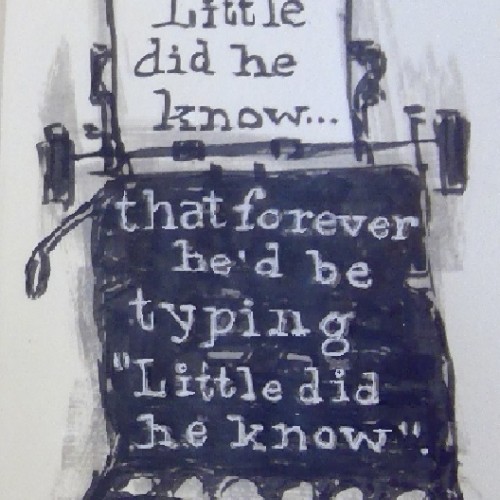 Little
did he
know...
that forever
he'd be
typing
"Little did
he know".